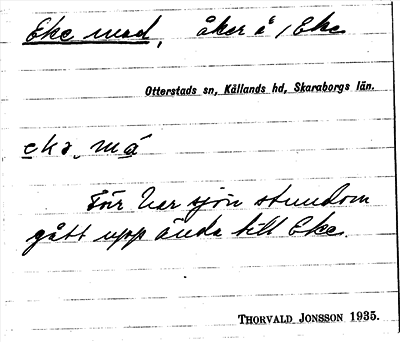 Eke mad, åker å / Eke
Otterstads sn, Kållands hd, Skaraborgs län.
eka, má
Förr har sjön stundom
gått upp ända till Eke.
THORVALD JONSSON 1935.